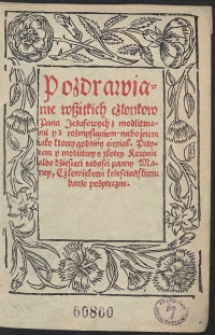 Pozdrawia-
nie wssitkich cżlonkow
Pana Jezusowych z modlitwa-
mi y z rozmyslaniem nabożnem
iako ktorey godziny cierpial. Po-
tem y modlitwy z zlotey Koronie
albo dziesieci radosci panny Ma-
ryey, Cżlowiekowi krżesciańskiemu
barzo pożyteczne.
60860